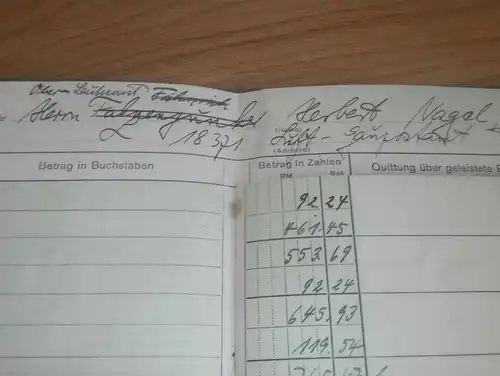 Ober-Leutnant
Herrn Herbert Nagel
18371
(Name)
Luft-
(Adresse)
Betrag in Buchstaben Betrag in Zahlen Quittung über geleistete
RM Rpf
92 24
461. 45
553. 69
92 24
645. 93
119. 54